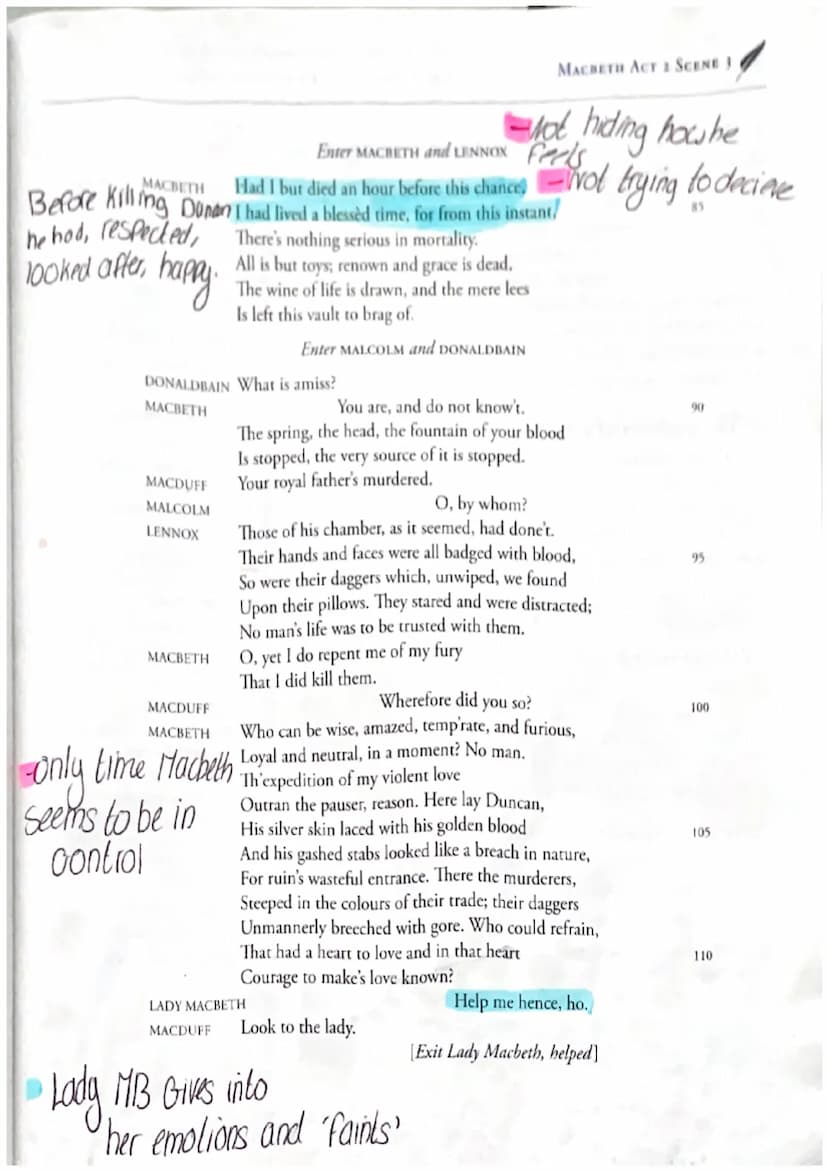 MACBETH ACT 2 SCENE 3
-Not hiding how he
feels
-Not trying to decieve
Enter MACBETH and LENNOX
MACBETH Had I but died an hour before this chance,
I had lived a blessèd time, for from this instant, 85
There's nothing serious in mortality.
All is but toys; renown and grace is dead,
The wine of life is drawn, and the mere lees
Is left this vault to brag of.
Before killing Dunan
he had, respected,
looked after, happy.
Enter MALCOLM and DONALDBAIN
DONALDBAIN What is amiss?
MACBETH You are, and do not know't. 90
The spring, the head, the fountain of your blood
Is stopped, the very source of it is stopped.
MACDUFF Your royal father's murdered.
MALCOLM O, by whom?
LENNOX Those of his chamber, as it seemed, had done't.
Their hands and faces were all badged with blood, 95
So were their daggers which, unwiped, we found
Upon their pillows. They stared and were distracted;
No man's life was to be trusted with them.
MACBETH O, yet I do repent me of my fury
That I did kill them.
MACDUFF Wherefore did you so? 100
MACBETH Who can be wise, amazed, temp'rate, and furious,
Loyal and neutral, in a moment? No man.
Th'expedition of my violent love
Outran the pauser, reason. Here lay Duncan,
His silver skin laced with his golden blood 105
And his gashed stabs looked like a breach in nature,
For ruin's wasteful entrance. There the murderers,
Steeped in the colours of their trade; their daggers
Unmannerly breeched with gore. Who could refrain,
That had a heart to love and in that heart 110
Courage to make's love known?
-only time Macbeth
seems to be in
control
LADY MACBETH Help me hence, ho.
MACDUFF Look to the lady.
[Exit Lady Macbeth, helped]
Lady MB Gives into
her emotions and 'faints'